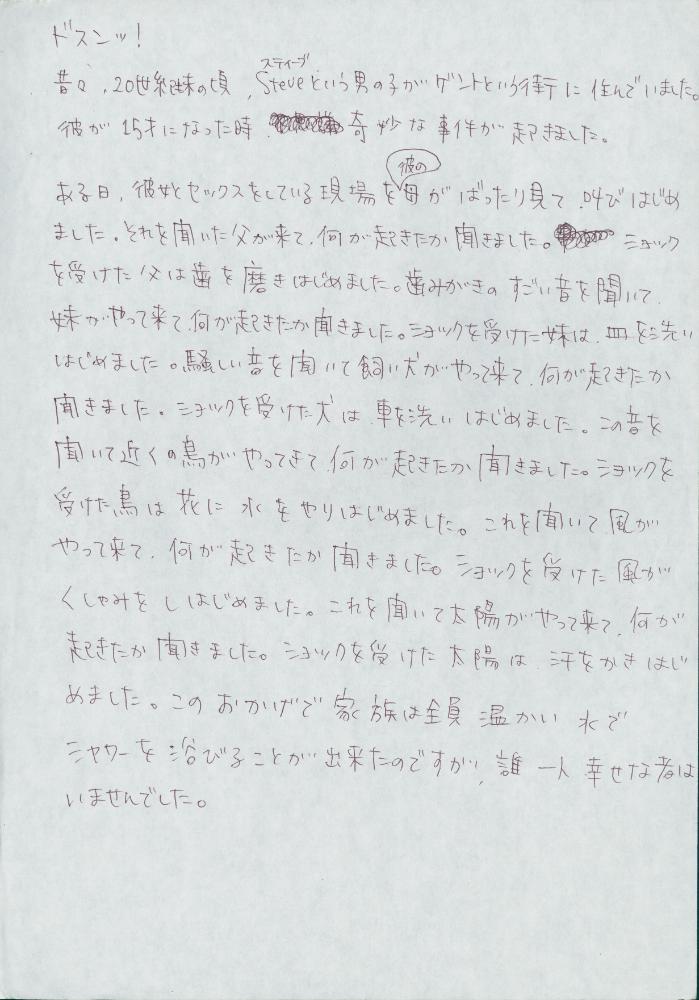 ドスンッ!
昔々、20世紀末の頃、Steveという男の子がゲントという街に住んでいました。
スティーブ
彼が15才になった時、奇妙な事件が起きました。
彼の
ある日、彼女とセックスをしている現場を母がばったり見て、叫びはじめ
ました。それを聞いた父が来て、何が起きたか聞きました。ショック
を受けた父は歯を磨きはじめました。歯みがきのすごい音を聞いて、
妹がやって来て、何が起きたか聞きました。ショックを受けた妹は、皿を洗い
はじめました。騒しい音を聞いて飼い犬がやって来て、何が起きたか
聞きました。ショックを受けた犬は、車を洗いはじめました。この音を
聞いて近くの鳥がやってきて、何が起きたか聞きました。ショックを
受けた鳥は花に水をやりはじめました。これを聞いて風が
やって来て、何が起きたか聞きました。ショックを受けた風が
くしゃみをしはじめました。これを聞いて太陽がやって来て、何が
起きたか聞きました。ショックを受けた太陽は、汗をかきはじ
めました。このおかげで家族は全員温かい水で
シャワーを浴びることが出来たのですが、誰一人幸せな者は
いませんでした。